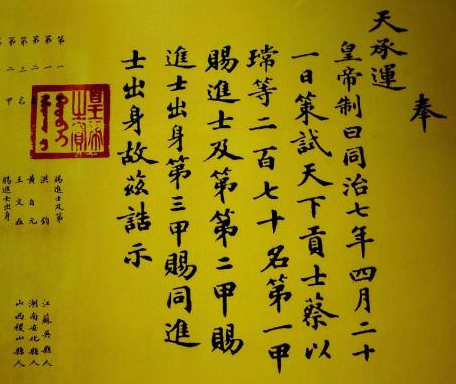 奉
天承運
皇帝制曰同治七年四月二十
一日策試天下貢士蔡以
瑺等二百七十名第一甲
賜進士及第第二甲賜
進士出身第三甲賜同進
士出身故茲誥示
皇帝之寶
第一 賜進士及第
第一 洪鈞 江蘇吳縣人
第二 黃自元 湖南安化縣人
第三名 王文在 山西稷山縣人
第二甲 賜進士出身